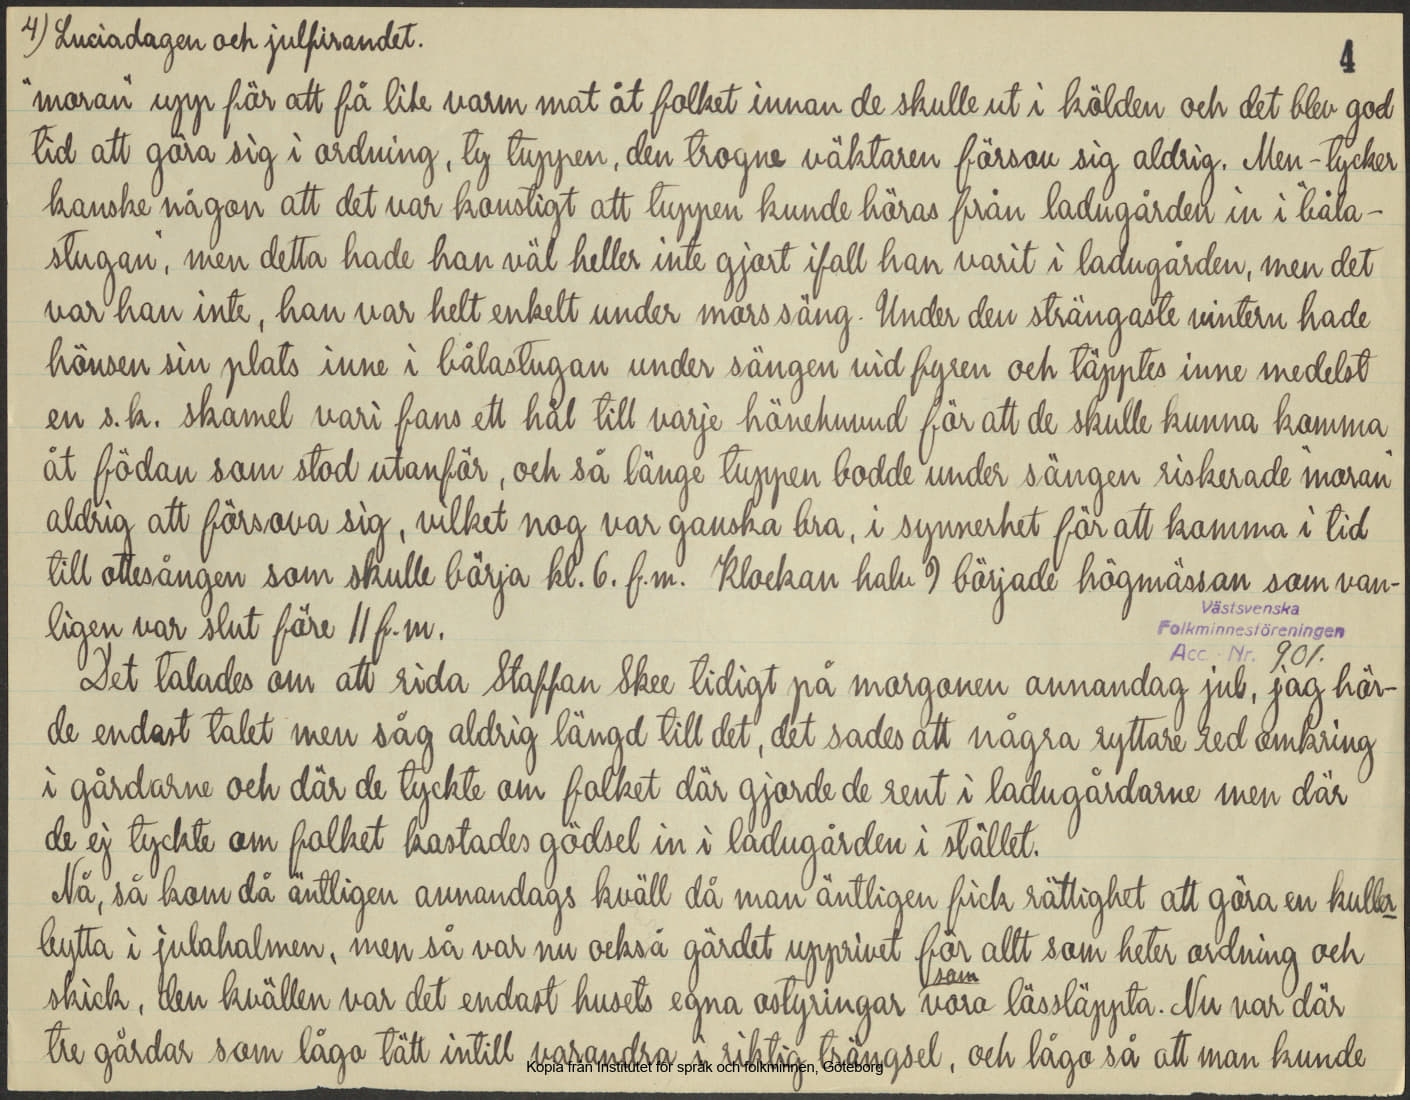 4) Luciadagen och julfirandet.
4
"moran" upp för att få lite varm mat åt folket innan de skulle ut i kölden och det blev god
tid att göra sig i ordning, ty tuppen, den trogne väktaren försov sig aldrig. Men - tycker
kanske någon att det var konstigt att tuppen kunde höras från ladugården in i "båla-
stugan", men detta hade han väl heller inte gjort ifall han varit i ladugården, men det
var han inte, han var helt enkelt under mors säng. Under den strängaste vintern hade
hönsen sin plats inne i bålastugan under sängen vid fyren och täpptes inne medelst
en s.k. skamel vari fans ett hål till varje hönehuvud för att de skulle kunna komma
åt födan som stod utanför, och så länge tuppen bodde under sängen riskerade "moran"
aldrig att försova sig, vilket nog var ganska bra, i synnerhet för att komma i tid
till ottesången som skulle börja kl. 6. f.m. Klockan halv 9 började högmässan som van-
ligen var slut före 11 f.m.
Västsvenska
Folkminnesföreningen
Acc. Nr. 901.
Det talades om att rida Staffan Skee tidigt på morgonen annandag jul, jag hör-
de endast talet men såg aldrig längd till det, det sades att några ryttare red omkring
i gårdarne och där de tyckte om folket där gjorde de rent i ladugårdarne men där
de ej tyckte om folket kastades gödsel in i ladugården i stället.
Nå, så kom då äntligen annandags kväll då man äntligen fick rättighet att göra en kuller
bytta i julahalmen, men så var nu också gärdet upprivet för allt som heter ordning och
skick, den kvällen var det endast husets egna ostyringar som voro lössläppta. Nu var där
tre gårdar som lågo tätt intill varandra i riktig trängsel, och lågo så att man kunde
Kopia från Institutet för språk och folkminnen, Göteborg